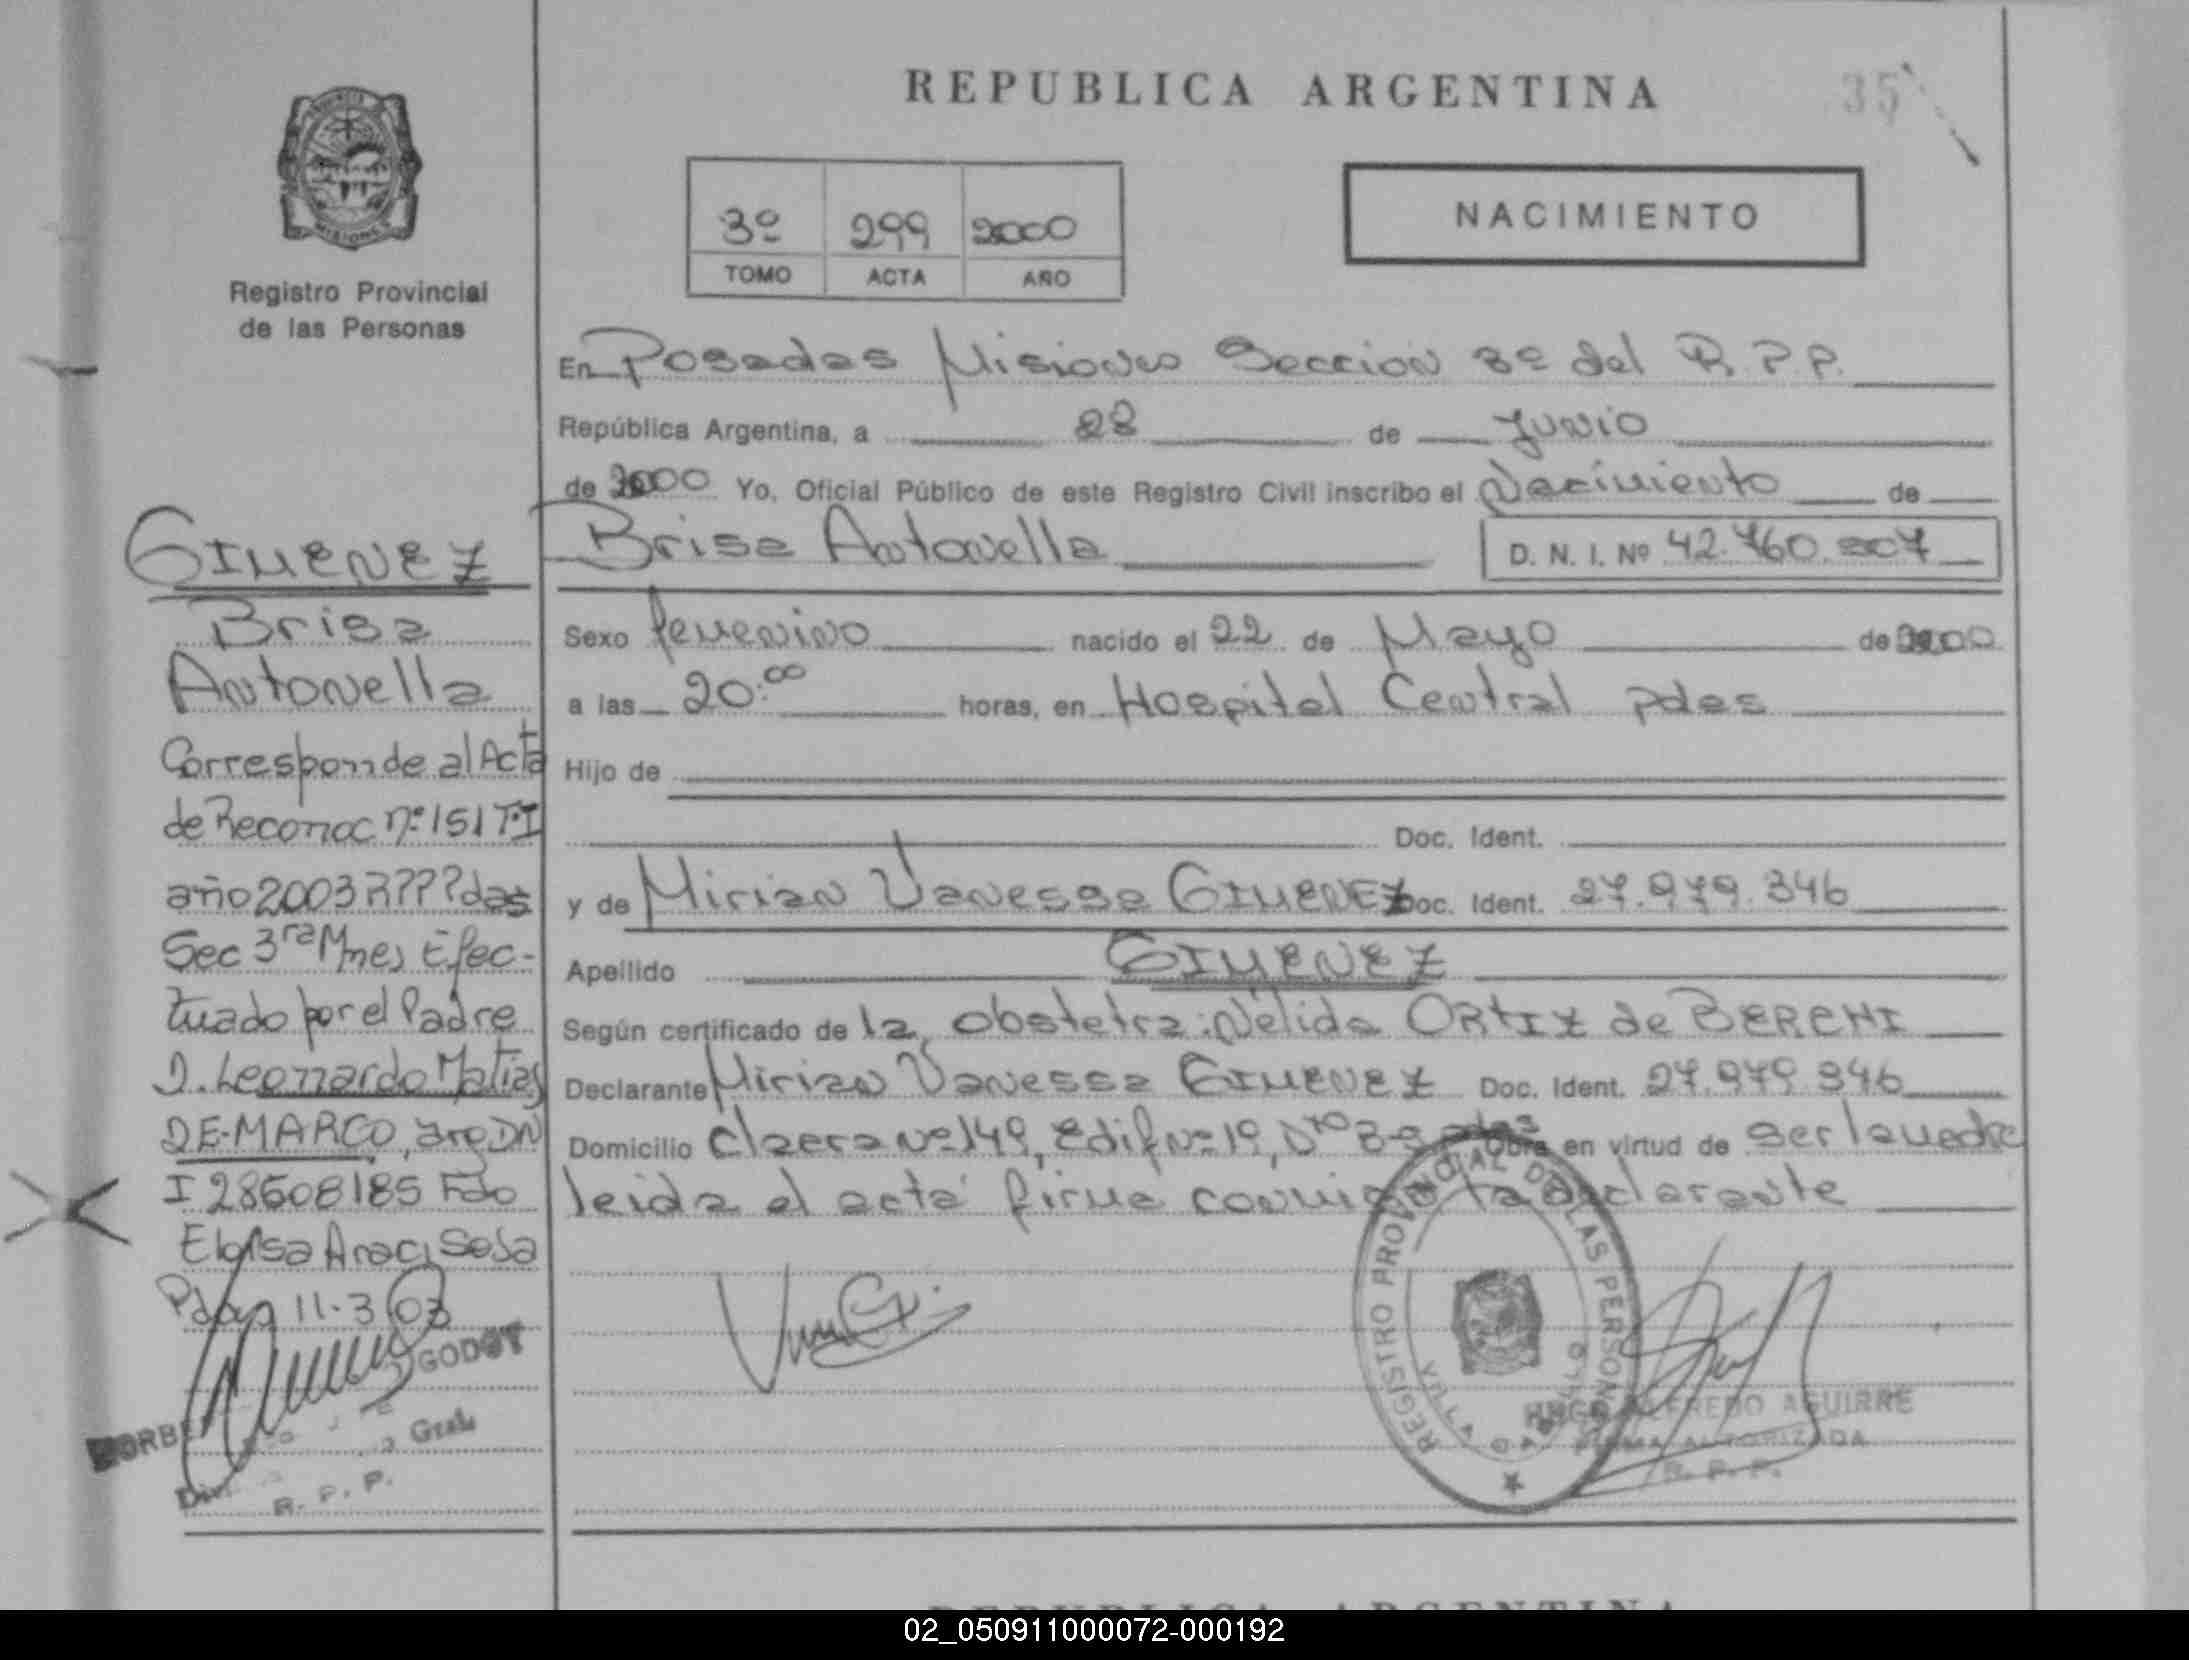 REPUBLICA ARGENTINA
35
3º 299 2000
TOMO ACTA AÑO
NACIMIENTO
MISIONES
Registro Provincial
de las Personas
En Posadas Misiones Seccion 3º del R.P.P.
República Argentina, a 28 de Junio
de 2000 Yo, Oficial Público de este Registro Civil inscribo el Nacimiento de
Brisa Antonella D. N. I. Nº 42.760.807
Sexo femenino nacido el 22 de Mayo de 2000
a las 20:00 horas, en Hospital Central Pdas
Hijo de
Doc. Ident.
y de Mirian Vanessa GIMENEZ Doc. Ident. 27.979.346
Apellido GIMENEZ
Según certificado de la obstetra: Nélida ORTIZ de
Declarante Mirian Vanessa GIMENEZ Doc. Ident. 27.979.346
Domicilio Nº 149, Edif Nº 19, Dto Obra en virtud de ser la madre
leida el acta firma conmigo la declarante
GIMENEZ
Brisa
Antonella
Corresponde al Acta
de Reconoc nº 151 T-I
año 2003
Sec 3ra Mnes Efec-
tuado por el Padre
D. Leonardo Matias
DE-MARCO, arg DN
I 28608185 Fdo
Sosa
Pdas 11-3-03
GODOY
Gral.
R. P. P.
REGISTRO PROVINCIAL DE LAS PERSONAS
VILLA CABELLO
HUGO ALFREDO AGUIRRE
FIRMA AUTORIZADA
R. P. P.
REPUBLICA ARGENTINA
02_050911000072-000192